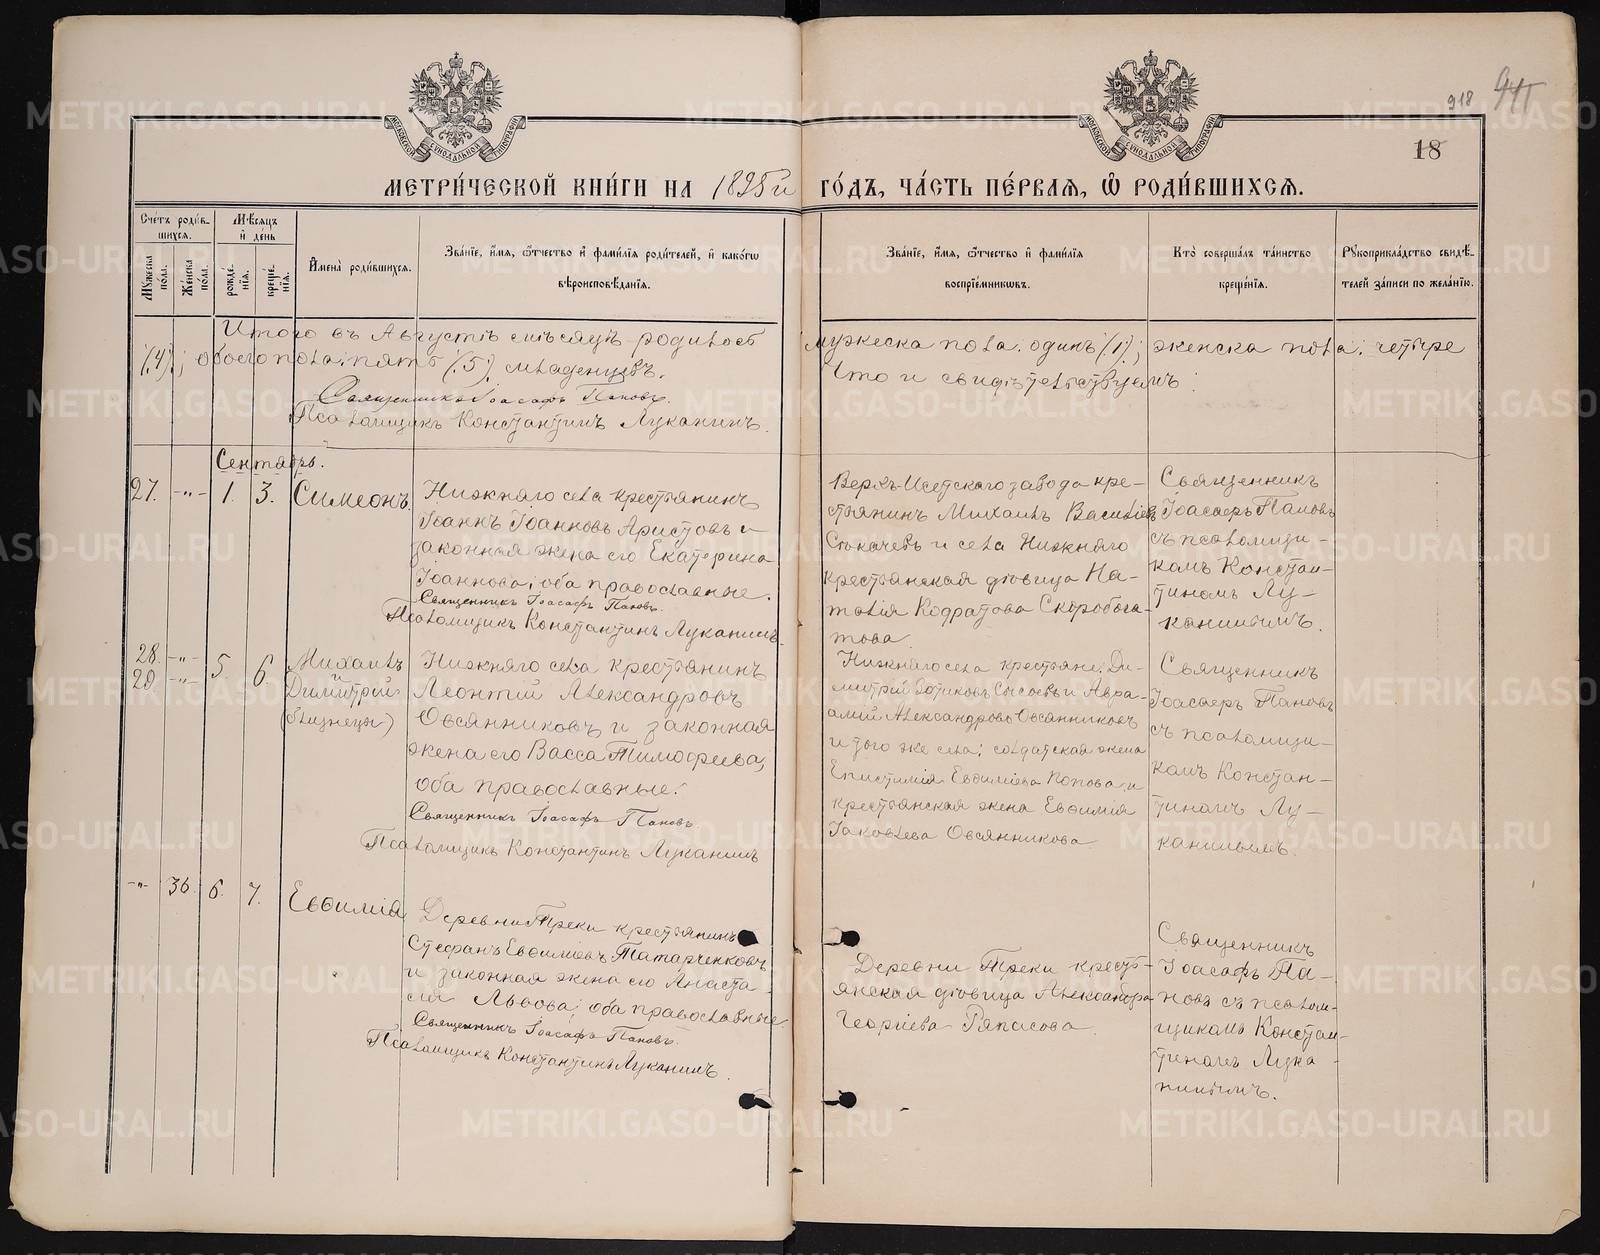 918 941
18
МОСКОВСКОЙ СѴНОДАЛЬНОЙ ТИПОГРАФІИ
МОСКОВСКОЙ СѴНОДАЛЬНОЙ ТИПОГРАФІИ
МЕТРИ́ЧЕСКОЙ КНИ́ГИ НА 1895й ГО́ДЪ, ЧА́СТЬ ПЕ́РВАЯ, Ѡ РОДИ́ВШИХСЯ.
Сче́тъ роди́в-
шихся.
Мѣсяцъ
и де́нь
Му́жеска
по́ла.
Же́нска
по́ла.
рожде́-
нія.
креще́-
нія.
Имена̀ роди́вшихся.
Зва́ніе, и́мя, ѻ́тчество и҆ фами́лія роди́телей, и҆ како́гѡ
вѣроисповѣ́данія.
Зва́ніе, и́мя, ѻ́тчество и҆ фами́лія
воспріе́мниковъ.
Кто̀ соверша́лъ та́инство
креще́нія.
Рꙋкоприкла́дство свидѣ́-
телей за́писи по жела́нію.
Итого въ Августѣ мѣсяцѣ родилось мужеска пола: одинъ (1); женска пола: четыре
(4); обоего пола: пять (5) младенцевъ. Что и свидѣтельствуемъ:
Священникъ Іоасафъ Пановъ.
Псаломщикъ Константинъ Луканинъ.
Сентябрь.
27. -"- 1. 3. Симеонъ.
Нижняго села крестьянинъ
Іоаннъ Іоанновъ Аристовъ и
законная жена его Екатерина
Іоаннова; оба православные.
Священникъ Іоасафъ Пановъ.
Псаломщикъ Константинъ Луканинъ.
Верхъ-Исетскаго завода кре-
стьянинъ Михаилъ Васильевъ
Сюкачевъ и села Нижняго
крестьянская дѣвица На-
талія Кодратова Скоробога-
това.
Священникъ
Іоасафъ Пановъ
съ псаломщи-
комъ Констан-
тиномъ Лу-
канинымъ.
28. -"-
29 -"- 5. 6.
Михаилъ
и
Димитрій
(близнецы)
Нижняго села крестьянинъ
Леонтій Александровъ
Овсянниковъ и законная
жена его Васса Тимофеева,
оба православные.
Священникъ Іоасафъ Пановъ.
Псаломщикъ Константинъ Луканинъ
Нижняго села крестьяне: Ди-
митрій Зотиковъ Сысоевъ и Авра-
амій Александровъ Овсянниковъ
и того же села: солдатская жена
Епистимія Евѳиміева Попова и
крестьянская жена Евѳимія
Іаковлева Овсянникова
Священникъ
Іоасафъ Пановъ
съ псаломщи-
комъ Констан-
тиномъ Лу-
канинымъ.
-"- 36. 6. 7. Евѳимія
Деревни Треки крестьянинъ
Стефанъ Евѳиміевъ Татарченковъ
и законная жена его Анаста-
сія Львова; оба православные
Священникъ Іоасафъ Пановъ.
Псаломщикъ Константинъ Луканинъ.
Деревни Треки кресть-
янская дѣвица Александра
Георгіева Ряпасова.
Священникъ
Іоасафъ Па-
новъ съ псалом-
щикомъ Констан-
тиномъ Лука-
нинымъ.
METRIKI.GASO-URAL.RU